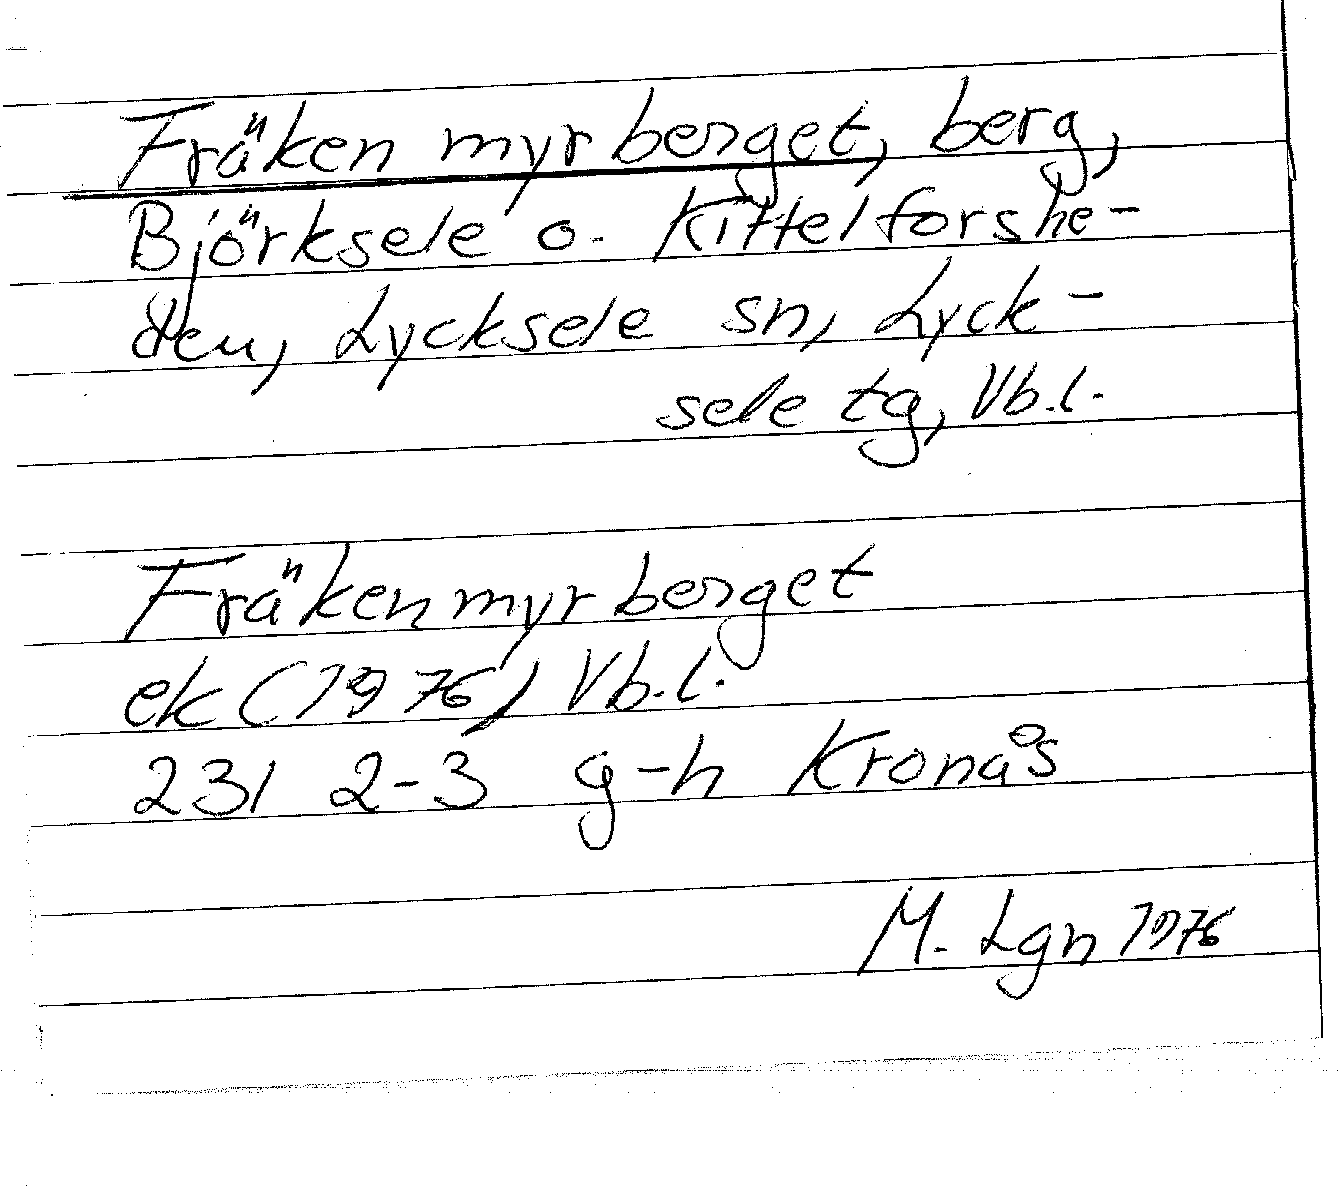 Fräkenmyrberget, berg,
Björksele o. Kittelforshe-
den, Lycksele sn, Lyck-
sele tg, Vb.l.
Fräkenmyrberget
ek (1976) Vb.l.
231 2-3 g-h Kronås
M. Lgn 1976